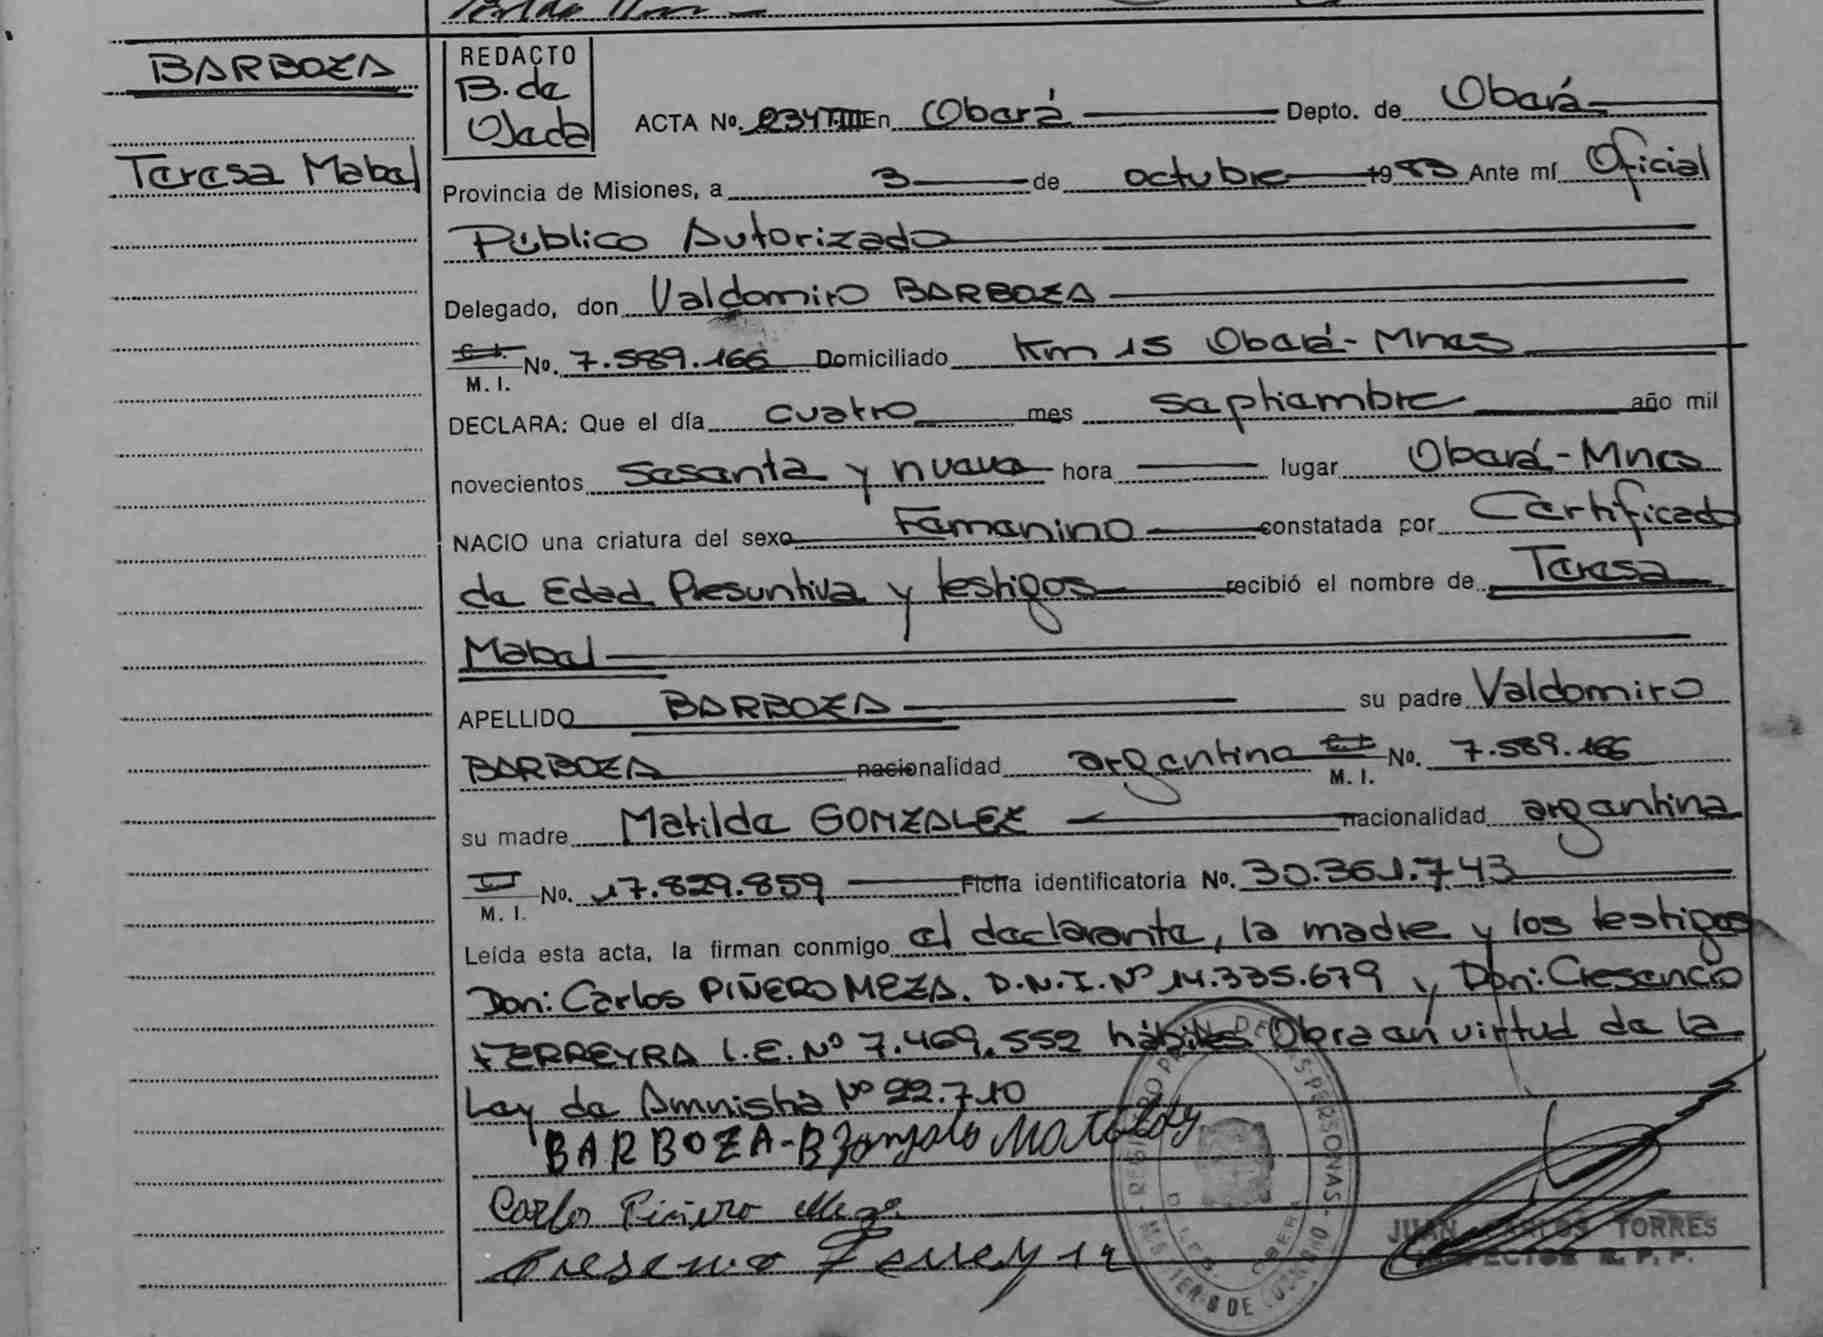 BARBOZA
Teresa Mabel
REDACTO
B. de
Ojeda
ACTA No. 234TIII En Oberá Depto. de Oberá
Provincia de Misiones, a 3 de octubre 1983 Ante mí Oficial
Público Autorizado
Delegado, don Valdomiro BARBOZA
C.I. M. I. No. 7.589.166 Domiciliado Km 15 Oberá-Mnes
DECLARA: Que el día cuatro mes septiembre año mil
novecientos sesenta y nueve hora lugar Oberá-Mnes
NACIO una criatura del sexo Femenino constatada por Certificado
de Edad Presuntiva y testigos recibió el nombre de Teresa
Mabel
APELLIDO BARBOZA su padre Valdomiro
BARBOZA nacionalidad argentina C.I. M. I. No. 7.589.166
su madre Matilde GONZALEZ nacionalidad argentina
M. I. No. 17.829.859 Ficha identificatoria No. 30.361.743
Leída esta acta, la firman conmigo el declarante, la madre y los testigos
Don: Carlos PIÑERO MEZA. D.N.I. Nº 14.335.679 y Don: Cresencio
FERREYRA L.E. Nº 7.469.552 hábiles. Obra en virtud de la
Ley de Amnistia Nº 22.710
BARBOZA-B
Carlo Piñero Meza
Cresencio Ferreyra
JUAN CARLOS TORRES
INSPECTOR R. P. P.